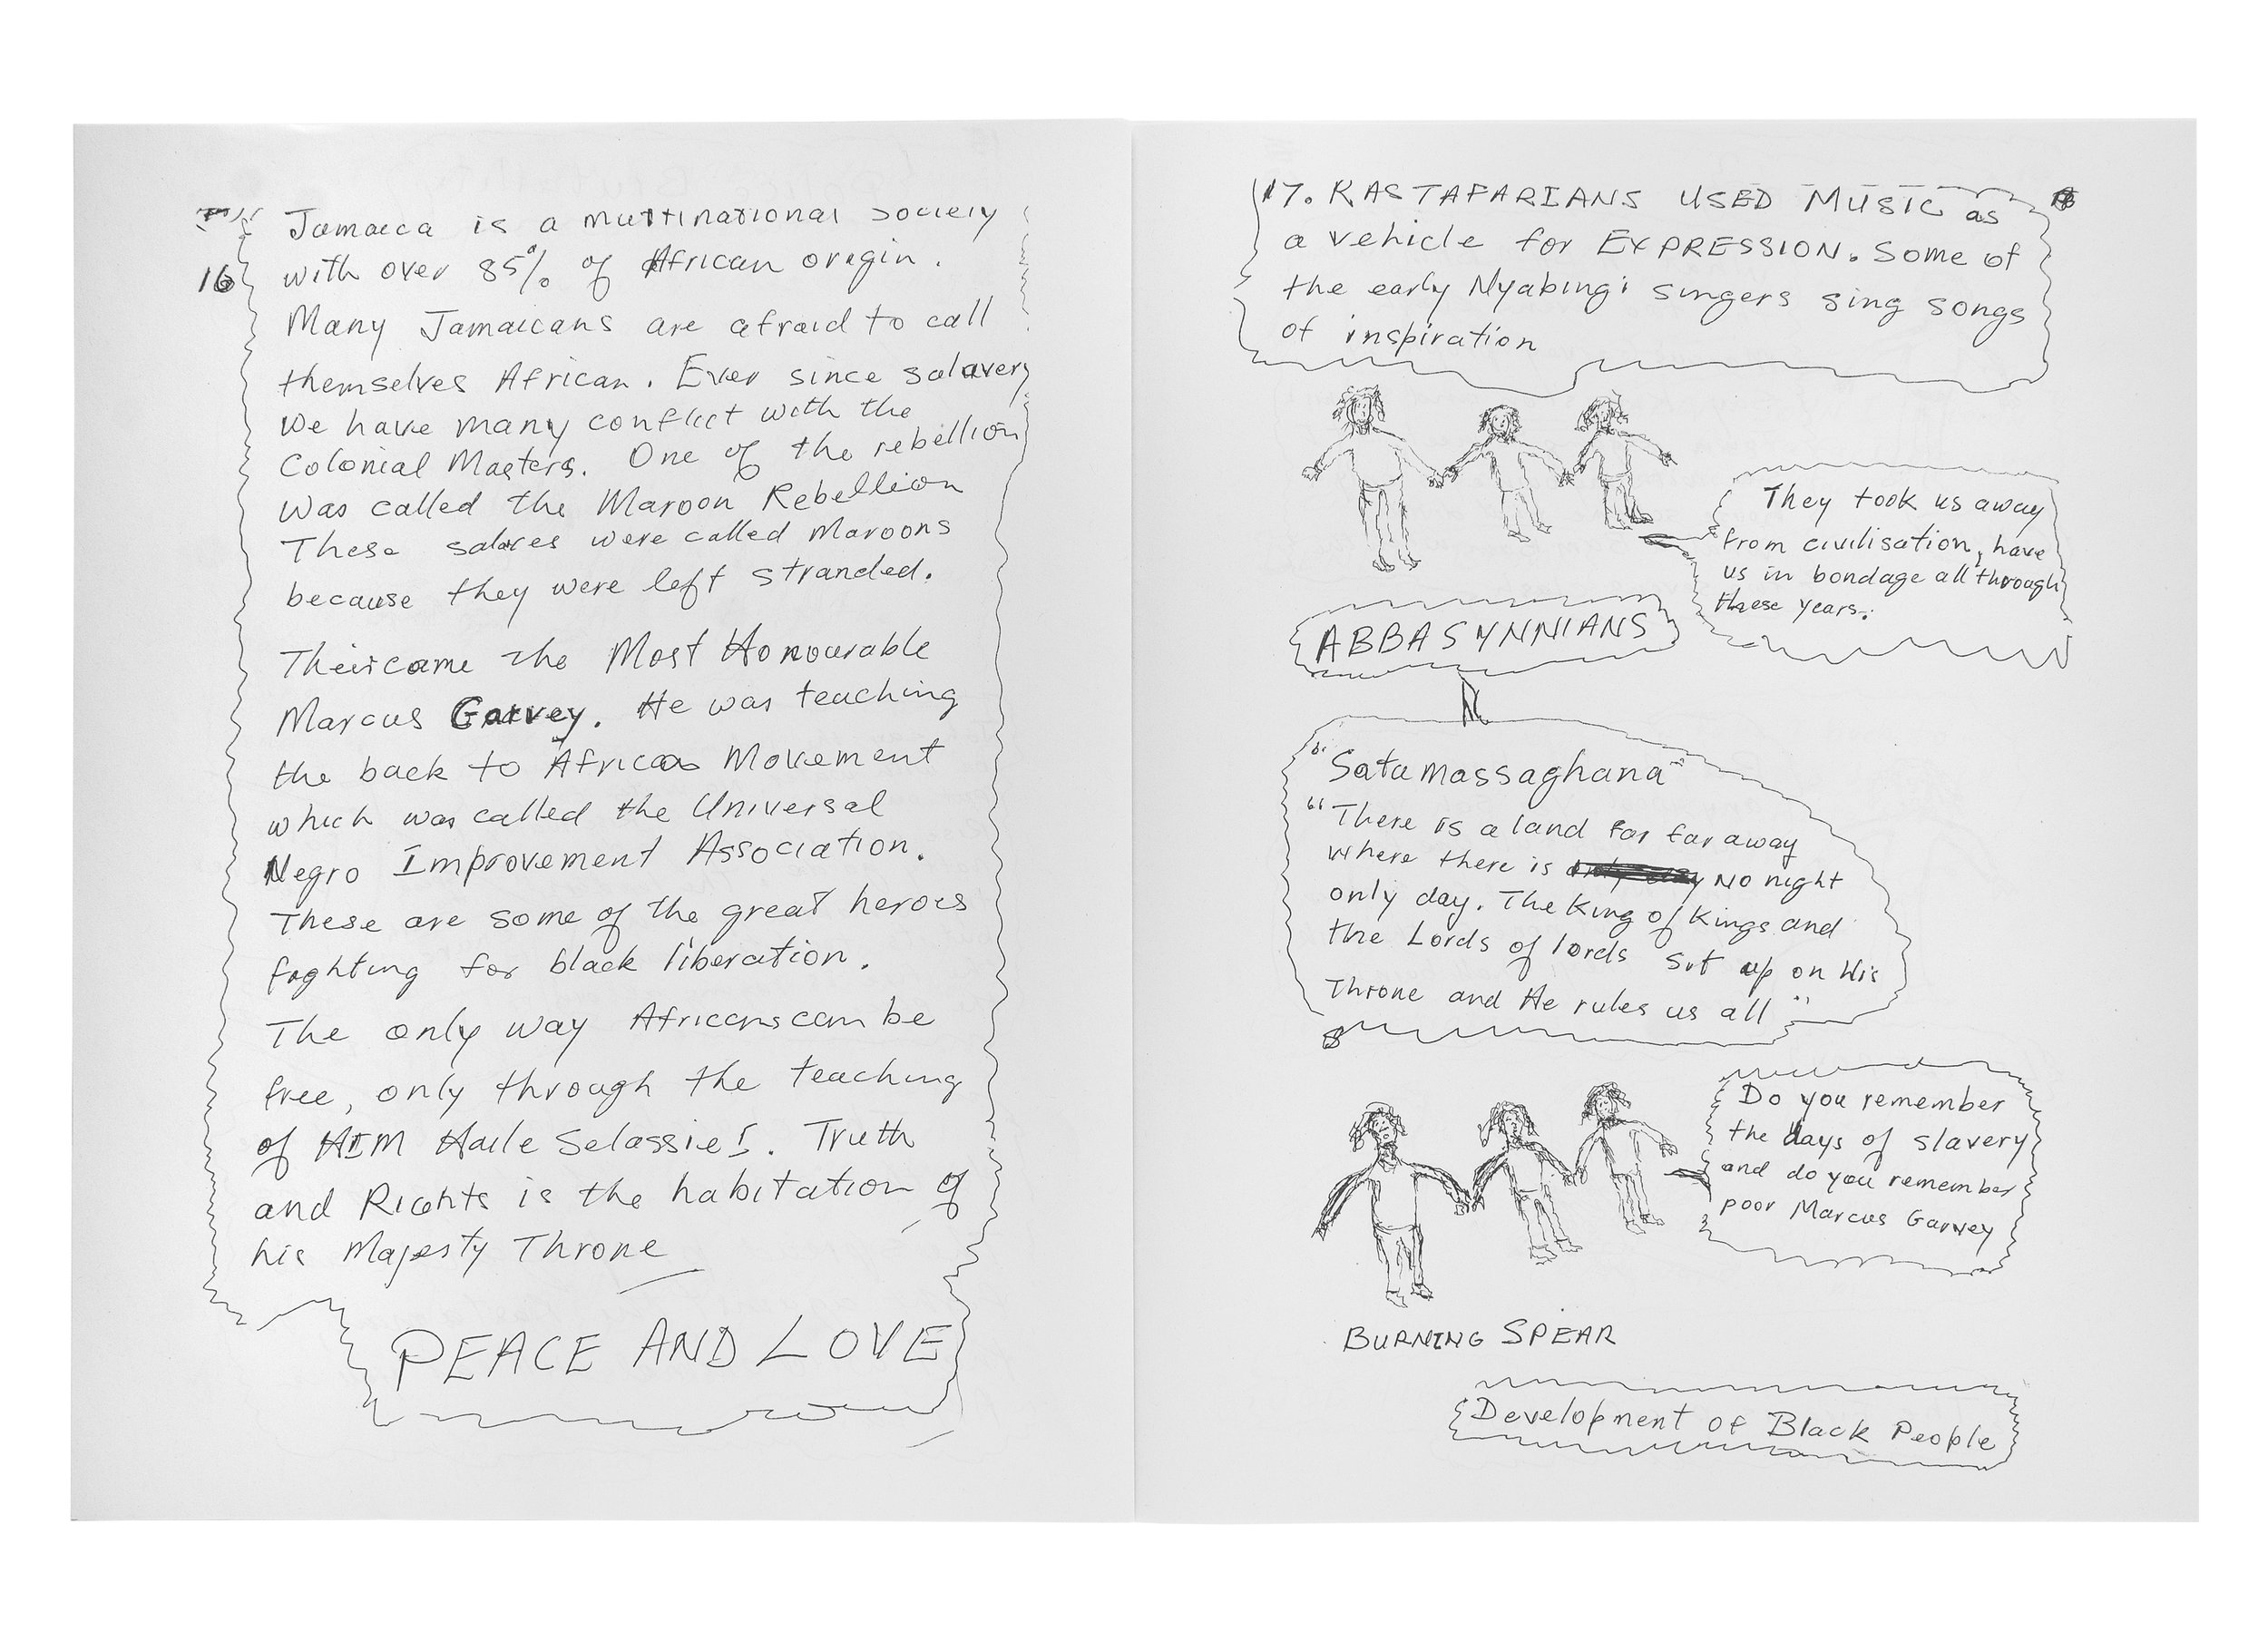 Jamaica is a multinational society
16 with over 85% of African origin.
Many Jamaicans are afraid to call
themselves African. Ever since salavery
we have many conflict with the
Colonial Masters. One of the rebellion
was called the Maroon Rebellion
These salaves were called Maroons
because they were left stranded.
Their came the Most Honourable
Marcus Garvey. He was teaching
the back to Africa Movement
which was called the Universal
Negro Improvement Association.
These are some of the great heroes
fighting for black liberation.
The only way Africans can be
free, only through the teaching
of HIM Haile Selassie I. Truth
and Rights is the habitation of
his Majesty Throne
PEACE AND LOVE
17. RASTAFARIANS USED MUSIC as
a vehicle for EXPRESSION. Some of
the early Nyabingi singers sing songs
of inspiration
They took us away
from civilisation, have
us in bondage all through
these years.
ABBASYNNIANS
"Satamassaghana"
"There is a land far far away
where there is NO night
only day. The King of Kings and
the Lords of lords sit up on His
Throne and He rules us all"
Do you remember
the days of slavery
and do you remember
poor Marcus Garvey
BURNING SPEAR
Development of Black People